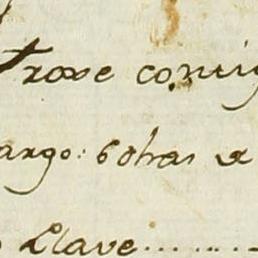 Troxe comig
argo: 6 obras a
Llave........